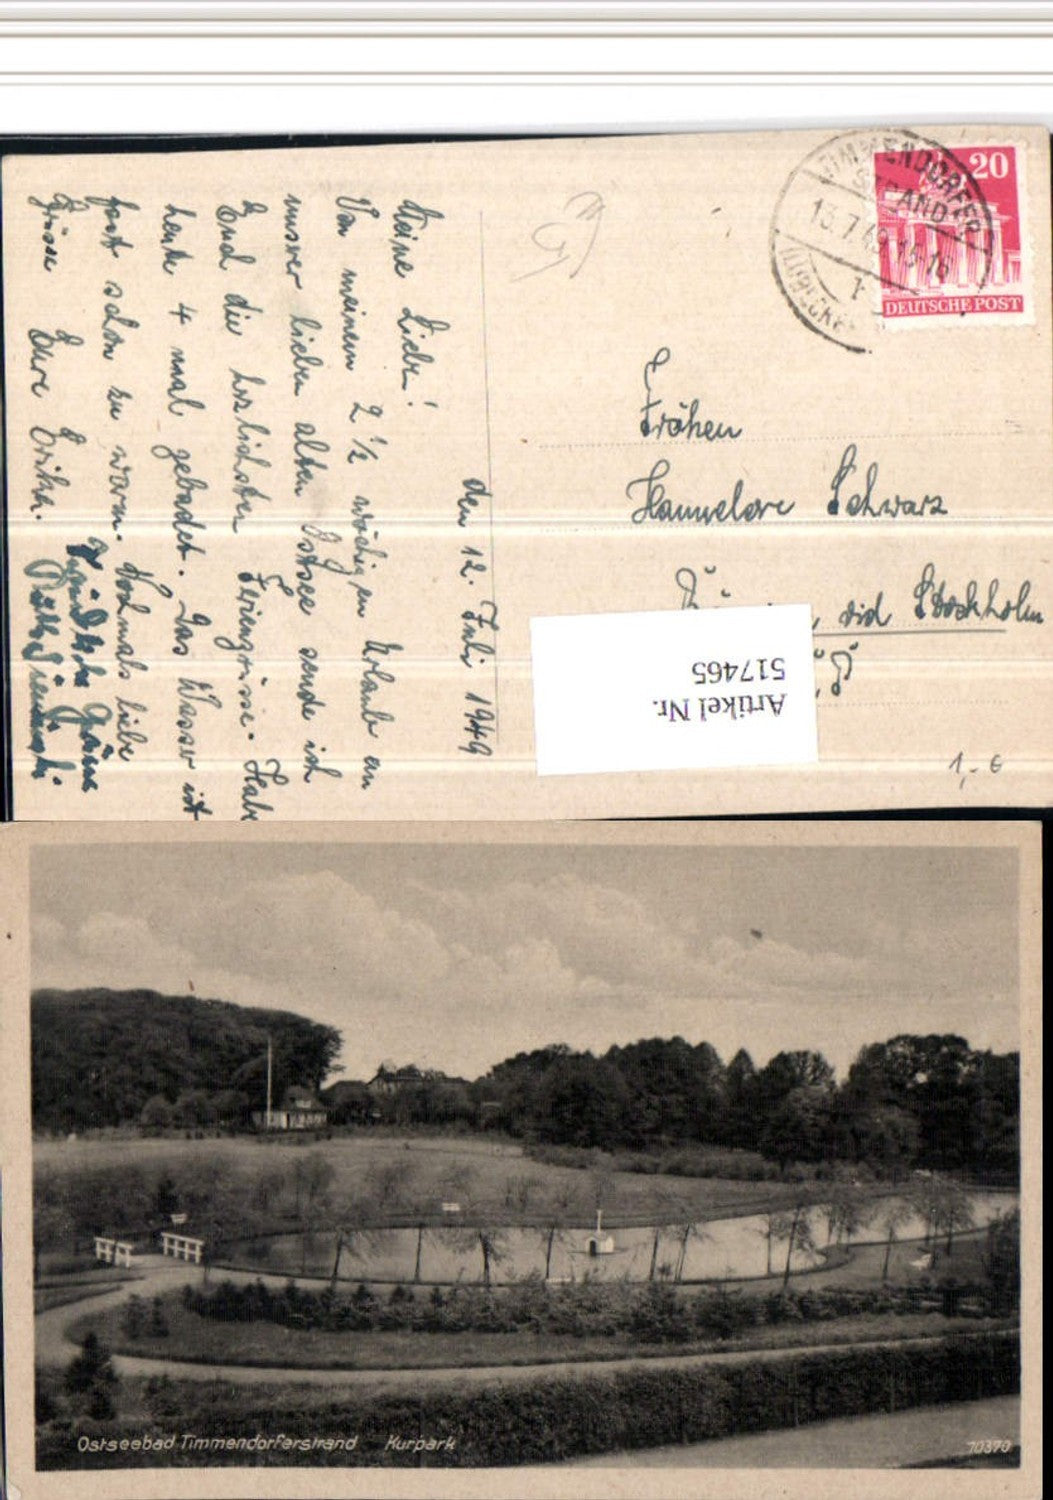 den 12. Juli 1949
Meine Liebe!
Von meinem 2 1/2 wöchigen Urlaub an
unserer lieben alten Ostsee sende ich
Euch die herzlichsten Feriengrüsse. Habe
heute 4 mal gebadet. Das Wasser ist
fast schon zu warm. Nochmals liebe
Grüsse Eure Erika.
TIMMENDORFER
STRAND
13.7.49.15-16
20
DEUTSCHE POST
Fröken
Hannelore Schwarz
vid Stockholm
Artikel Nr.
517465
1,- €
Ostseebad Timmendorferstrand Kurpark
70370